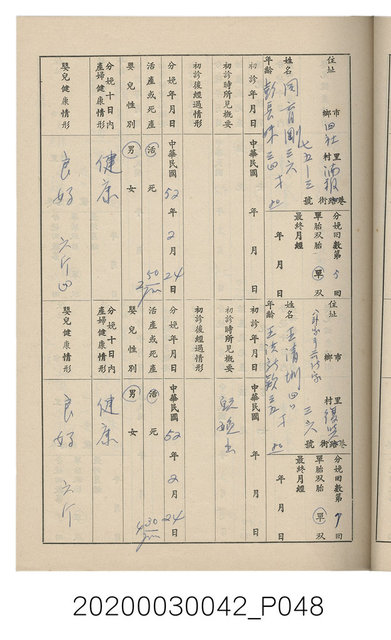 住址 鄉 市 田社 村 里 湳報 街 七五一三 號 分娩回數第 5 回
姓名 三六 單胎双胎 單 双
年齡 三四 才 最終月經 年 月 日
初診 年 月 日
初診時所見概要
初診後經過情形
分娩年月日 中華民國 52 年 2 月 24 日
活產或死產 活 死 50
嬰兒性別 男 女
分娩十日內產婦健康情形 健康
嬰兒健康情形 良好 六斤
住址 鄉 市 村 里 復興 街 三六 號 分娩回數第 回
姓名 王清 四 單胎双胎 單 双
年齡 王洪 才 最終月經 年 月 日
初診 年 月 日
初診時所見概要
初診後經過情形
分娩年月日 中華民國 52 年 2 月 24 日
活產或死產 活 死 30
嬰兒性別 男 女
分娩十日內產婦健康情形 健康
嬰兒健康情形 良好 六斤
20200030042_P048